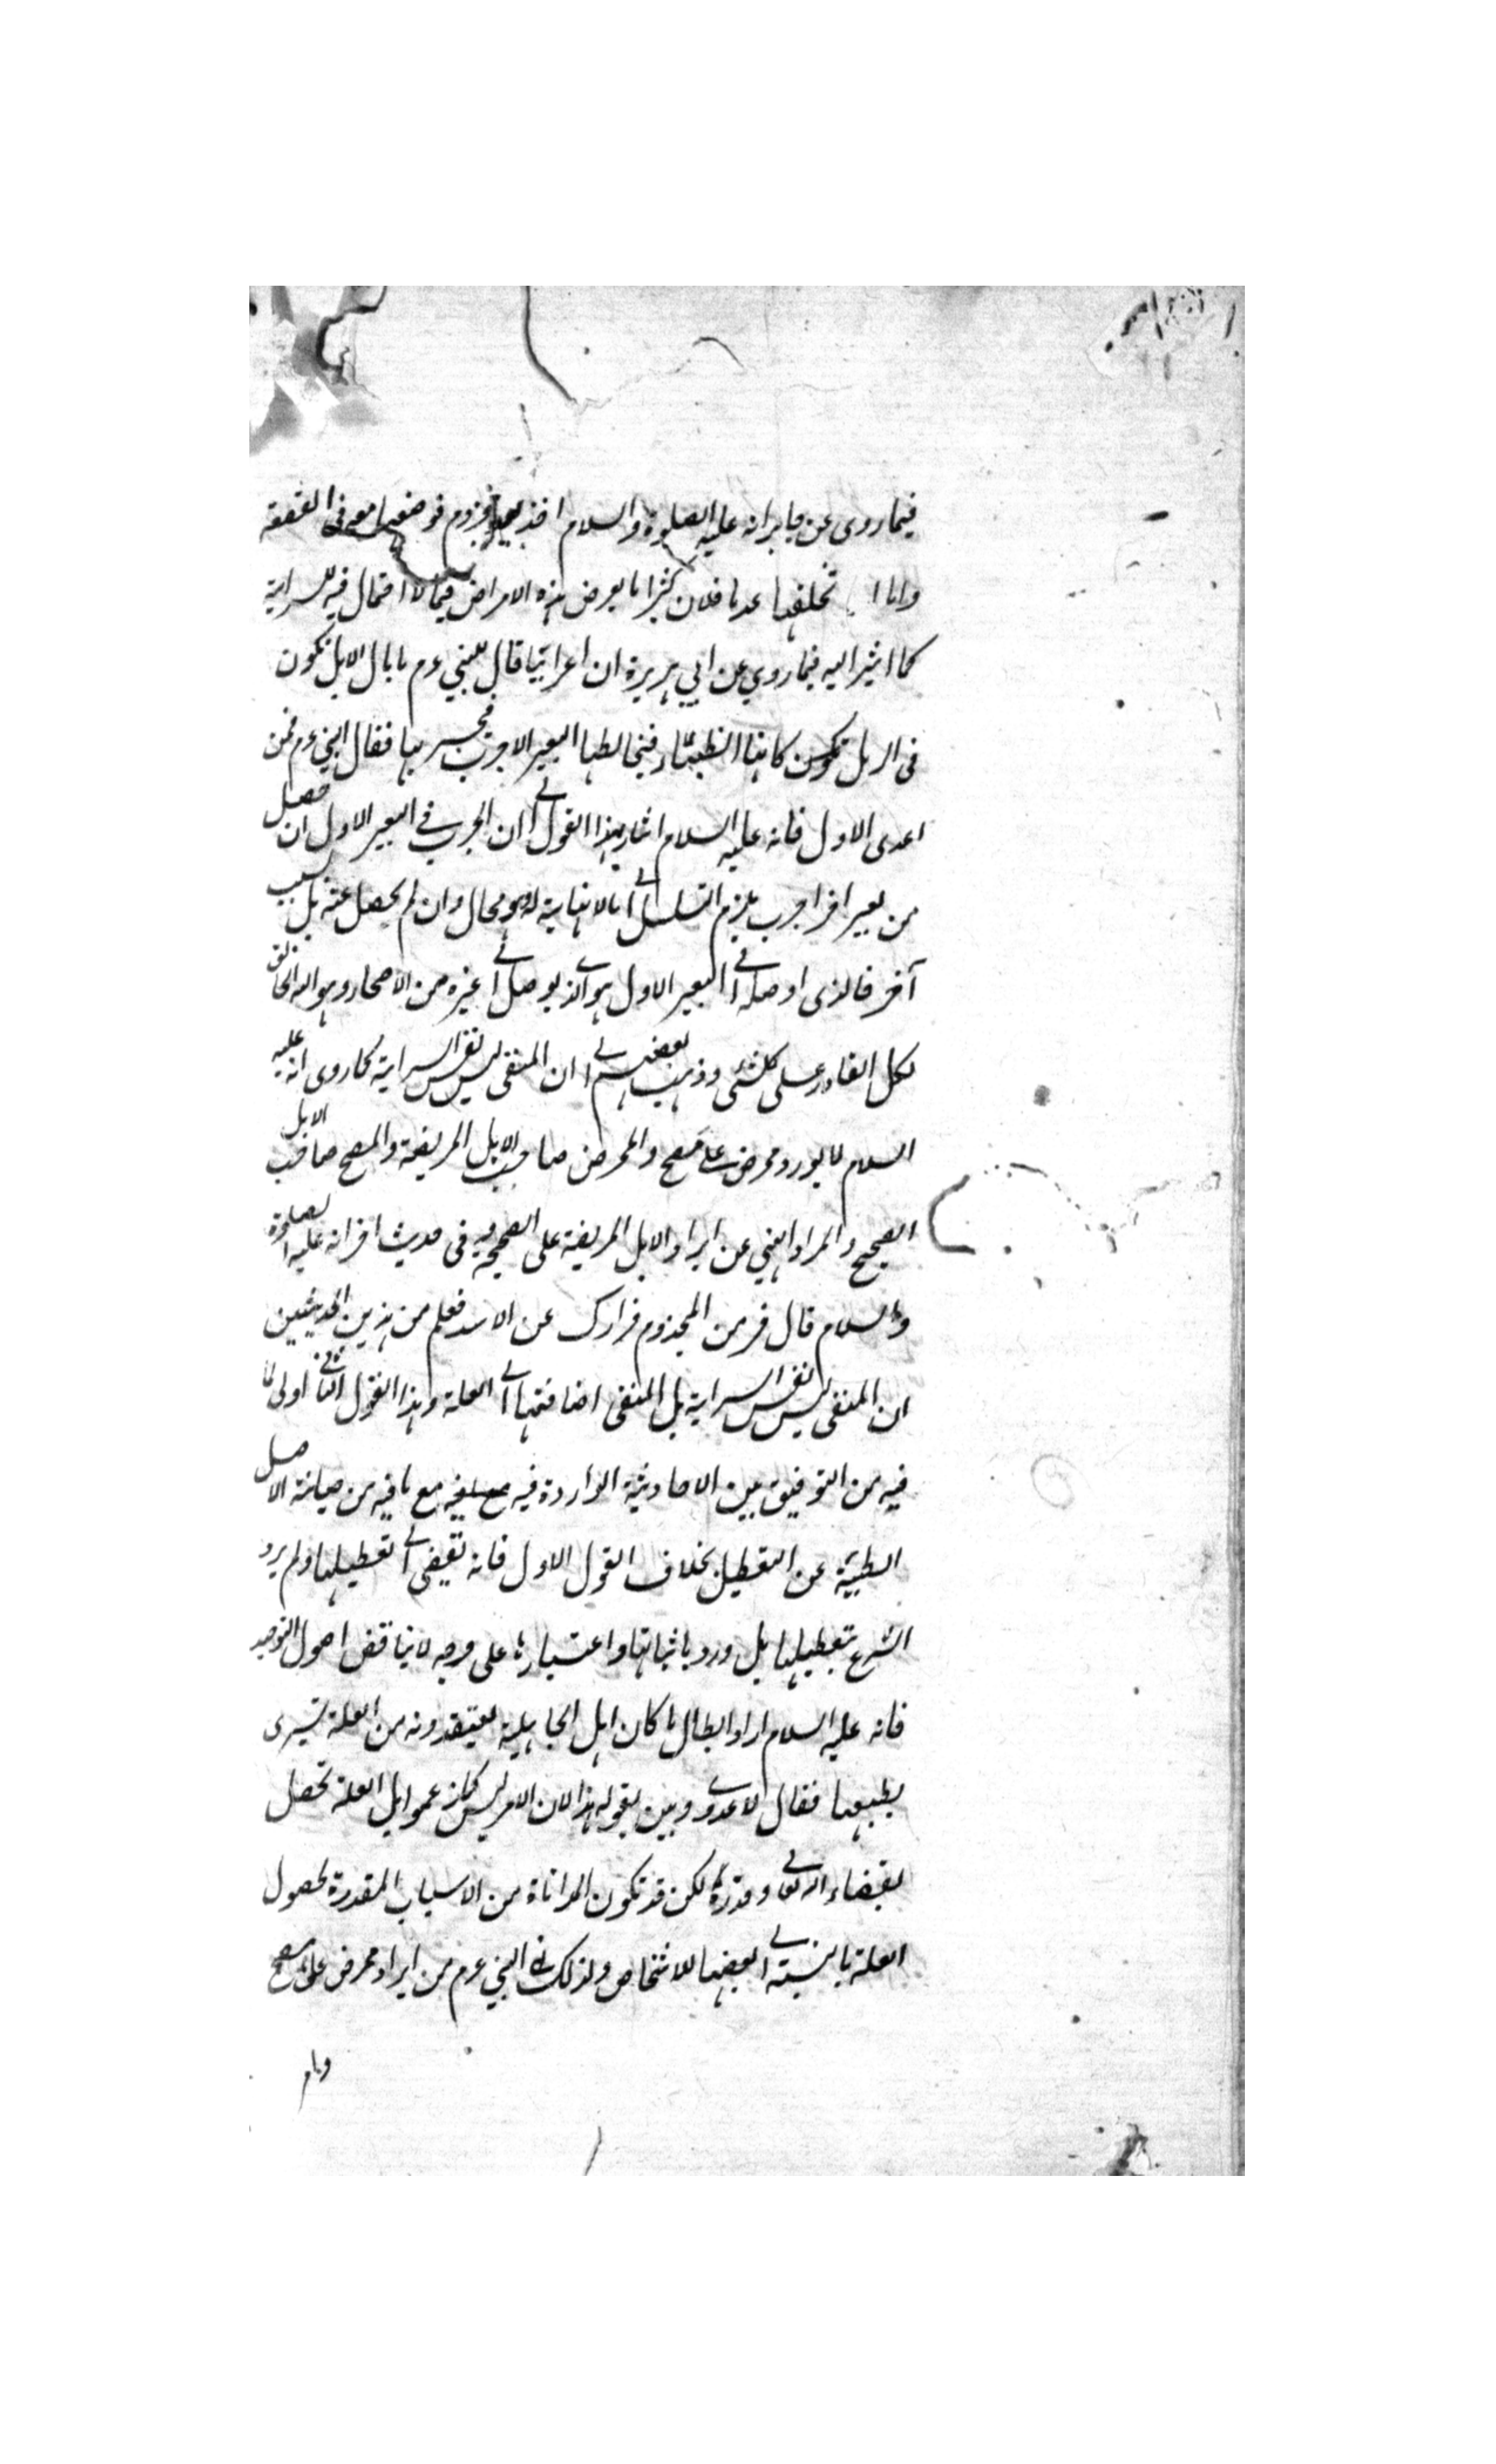 فيما روى عن جابر انه عليه الصلوة والسلام اخذ بيد مجذوم فوضعها معه فى القصعة
واما تخلفها عدما فلان كثيرا ما يعرض هذه الامراض فيما لا احتمال فيه للسراية
كما اشير اليه فيما روي عن ابي هريرة ان اعرابيا قال للنبي عم ما بال الابل تكون
فى الرمل تكون كانها الظباء فيخالطها البعير الاجرب فيجربها فقال النبي عم فمن
اعدى الاول فانه عليه السلام اشار بهذا القول الى ان الجرب في البعير الاول ان حصل
من بعير اخر اجرب يلزم التسلسل الى ما لا نهاية له وهو محال وان لم يحصل عنه بل بسبب
آخر فالذى اوصله الى البعير الاول هو الذي يوصل الى غيره من الاصحاء وهو الله الخالق
لكل القادر على كل شئ وذهب بعضهم الى ان المنفى ليس نفس السراية كما روى انه عليه
السلام لا يورد ممرض على مصح والممرض صاحب الابل المريضة والمصح صاحب الابل
الصحيح والمراد النهي عن ايراد الابل المريضة على الصحيحة وفى حديث اخر انه عليه الصلوة
والسلام قال فر من المجذوم فرارك عن الاسد فعلم من هذين الحديثين
ان المنفى ليس نفس السراية بل المنفى اضافتها الى العلة وهذا القول الثانى اولى لما
فيه من التوفيق بين الاحاديث الواردة فيه مع ما فيه من صيانة الاصل
الطبية عن التعطيل بخلاف القول الاول فانه يقضى الى تعطيلها ولم يرد
الشرع بتعطيلها بل ورد باثباتها واعتبارها على وجه لا يناقض اصول التوحيد
فانه عليه السلام اراد ابطال ما كان اهل الجاهلية يعتقدونه من العلة تسرى
بطبعها فقال لا عدوى وبين بقوله هذا لان الامر ليس كما زعموا بل العلة تحصل
بقضاء الله تعالى وقدره لكن قد تكون المداناة من الاسباب المقدرة لحصول
العلة بالنسبة الى بعضها للاشخاص ولذلك نهى النبي عم من ايراد ممرض على مصح